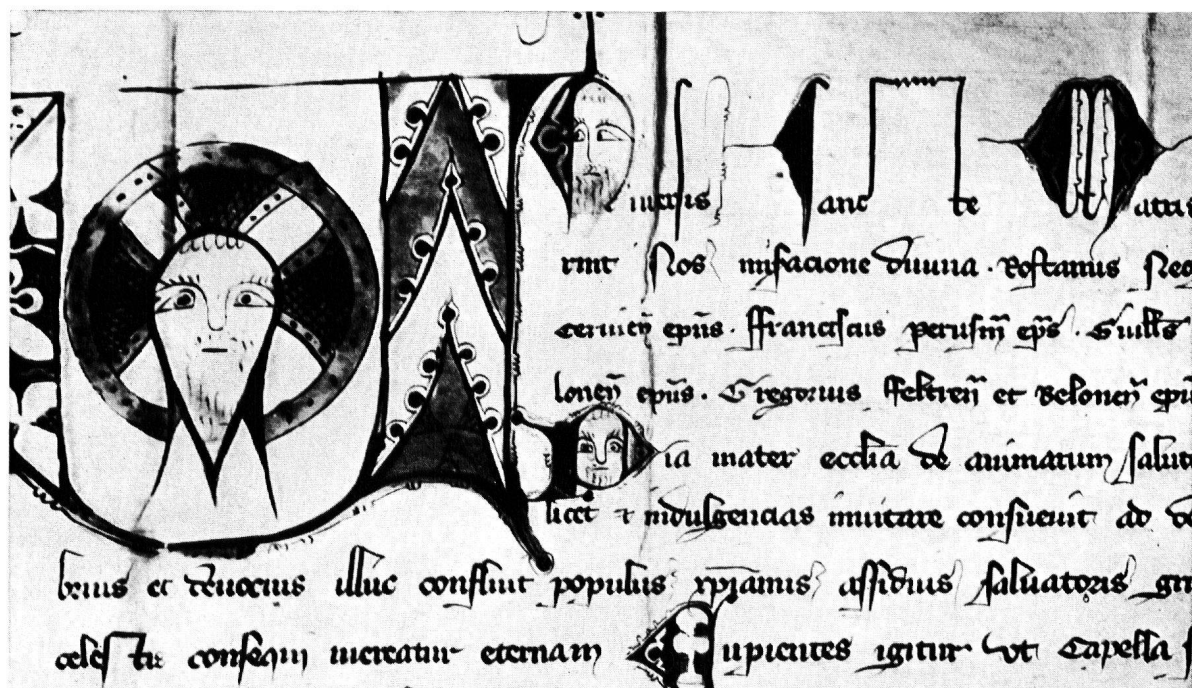 iuersis anc te atris
rint Nos miseracione diuina . Rostanus Neo
ep̄us . ffranciscus perusin̄ ep̄s . Guill̄s
lonen̄ ep̄us . Gregorius ffeltren̄ et Belonen̄ ep̄u
Pia mater eccl̄ia de animarum salute
licet ⁊ indulgencias inuitare consueuit ad de
brius et deuocius illuc confluit populus xp̄ianus assidius saluatoris gr
celestis consequi mereatur eternam Cupientes igitur vt Capella s